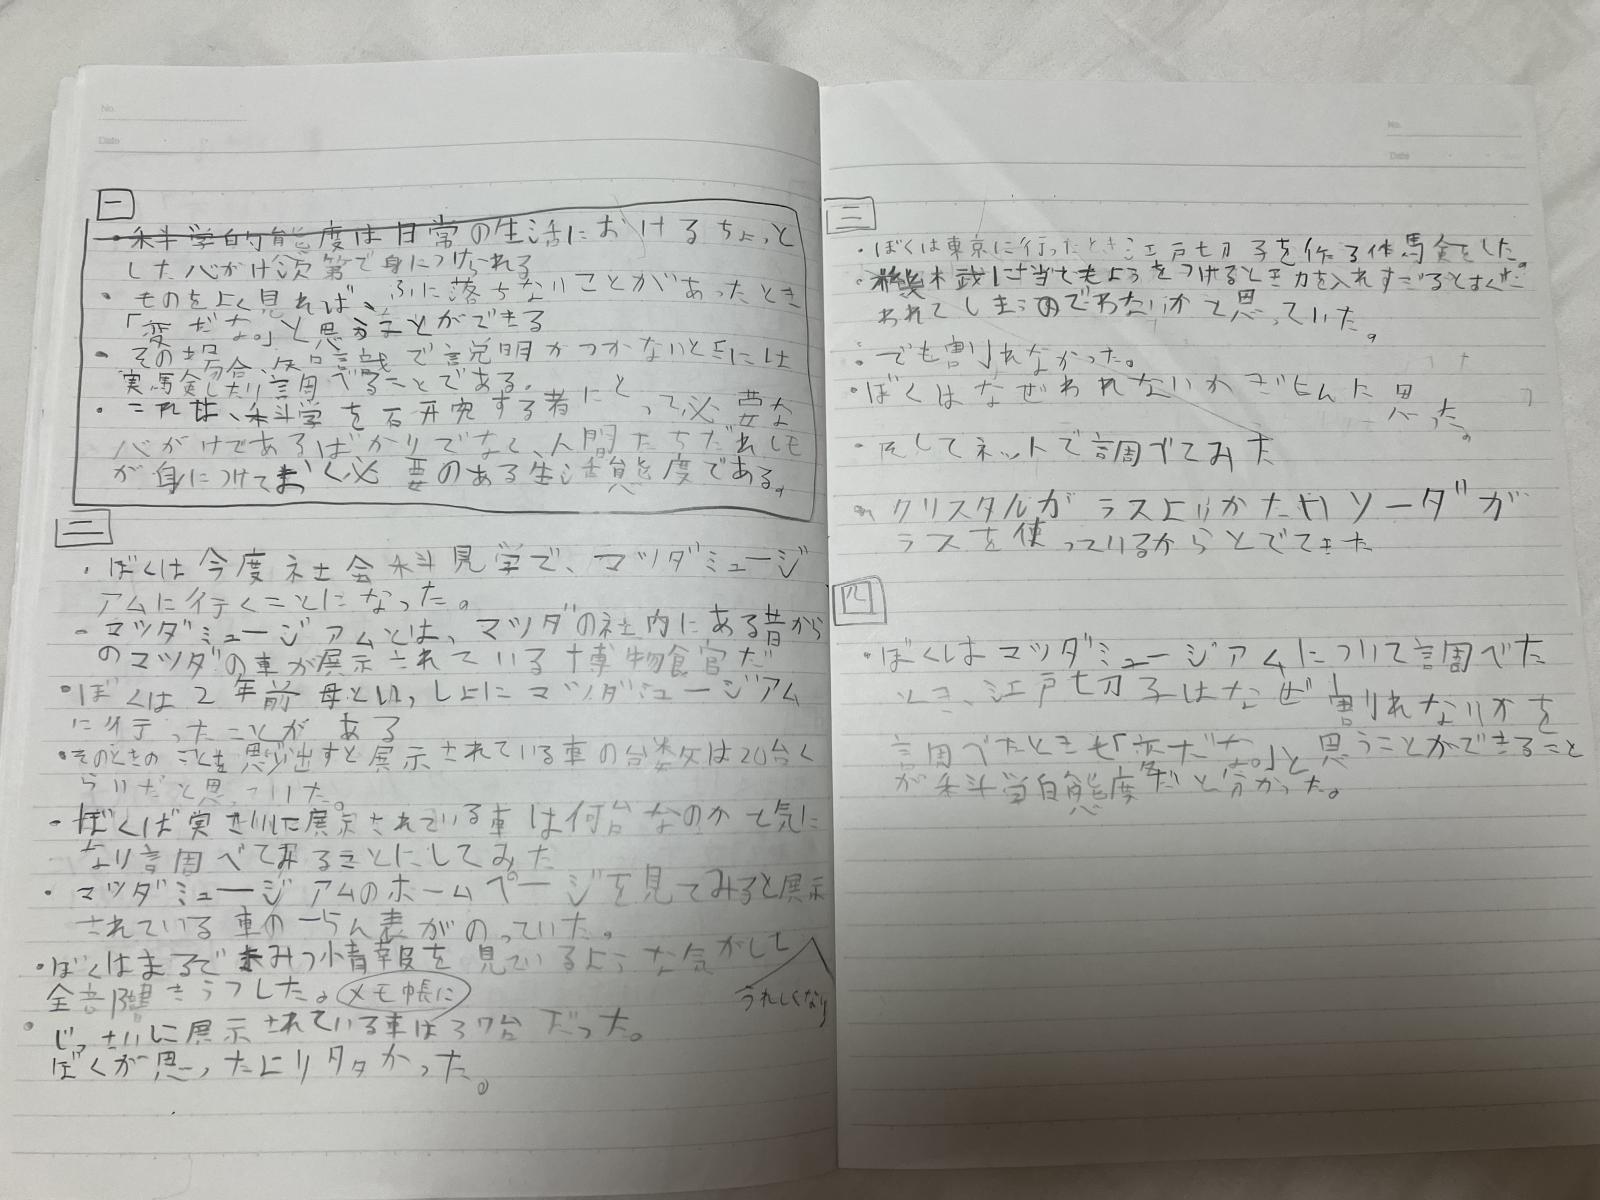 No.
Date
一
・科学的態度は日常の生活におけるちょっと
した心がけ次第で身につけられる
・ものをよく見れば、ふに落ちないことがあったとき
「変だな。」と思うことができる
・その場合、知識で説明がつかないときには
実験したり調べることである。
・これは、科学を研究する者にとって必要な
心がけであるばかりでなく、人間たちだれしも
が身につけておく必要のある生活態度である。
二
・ぼくは今度社会科見学で、マツダミュージ
アムに行くことになった。
・マツダミュージアムとは、マツダの社内にある昔から
のマツダの車が展示されている博物館だ
・ぼくは2年前母といっしょにマツダミュージアム
に行ったことがある
・そのときのことを思い出すと展示されている車の台数は20台く
らいだと思っていた。
・ぼくは実さいに展示されている車は何台なのかと気に
なり調べて見ることにしてみた
・マツダミュージアムのホームページを見てみると展示
されている車の一らん表がのっていた。
・ぼくはまるで きみつ情報を見ているような気がして
うれしくなり
全部書きうつした。メモ帳に
・じっさいに展示されている車は37台だった。
ぼくが思ったより多かった。
No.
Date
三
・ぼくは東京に行ったとき江戸切子を作る体験をした。
・機木武に当てもようをつけるとき力を入れすぎるとすぐに
われてしまうのでわないかと思っていた。
：でも割れなかった。
・ぼくはなぜわれないかぎもんに思った。
・そしてネットで調べてみた
・クリスタルガラスよりかたいソーダガ
ラスを使っているからとでてきた
四
・ぼくはマツダミュージアムについて調べた
とき、江戸切子はなぜ割れないかを
調べたときも「変だな。」と思うことができること
が科学的態度だと分かった。